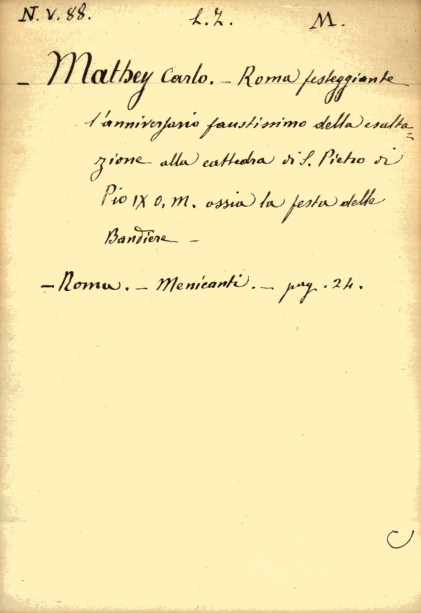 N. V. 88. L. Z. M.
– Mathey Carlo. – Roma festeggiante
l'anniversario faustissimo della esalta=
zione alla cattedra di S. Pietro di
Pio IX O. M. ossia la festa delle
Bandiere –
– Roma. – Menicanti. – pag. 24.